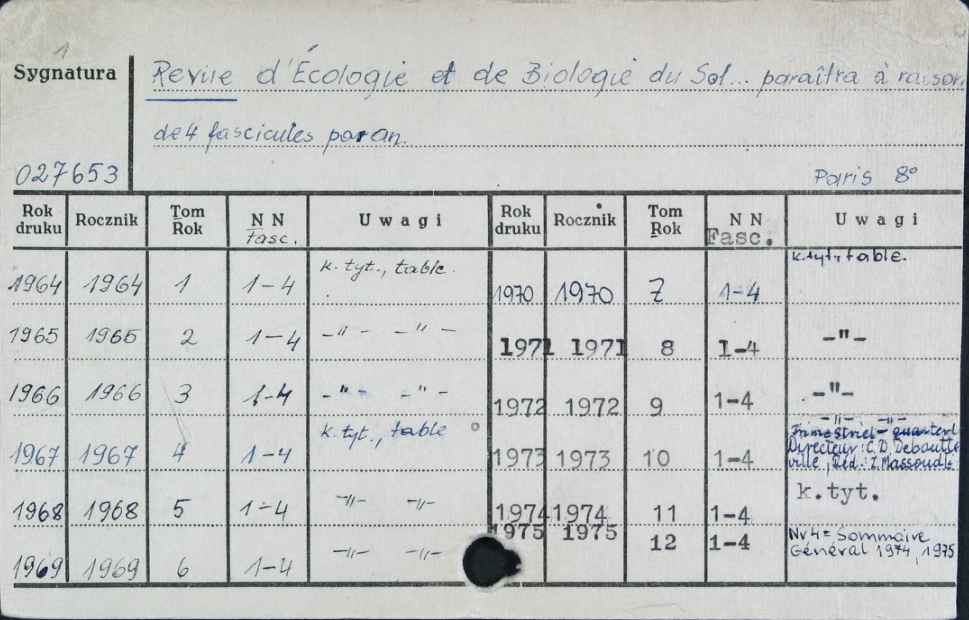 1
Sygnatura
Revue d'Écologie et de Biologie du Sol... paraîtra à raison
de 4 fascicules par an.
027653
Paris 8°
Rok druku Rocznik Tom Rok N N Fasc. Uwagi Rok druku Rocznik Tom Rok N N Fasc. Uwagi
1964 1964 1 1-4 k. tyt., table. 1970 1970 7 1-4 k.tyt., table.
1965 1965 2 1-4 -"- -"- 1971 1971 8 1-4 -"-
1966 1966 3 1-4 -"- -"- 1972 1972 9 1-4 -"-
1967 1967 4 1-4 k. tyt., table 1973 1973 10 1-4 -"- -"-
Trimestriel - quarterl
Directeur: C.D. Deboutte
ville, Réd.: Z. Massoud
1968 1968 5 1-4 -"- -"- 1974 1974 11 1-4 k.tyt.
1969 1969 6 1-4 -"- -"- 1975 1975 12 1-4 Nr 4 = Sommaire
Général 1974, 1975